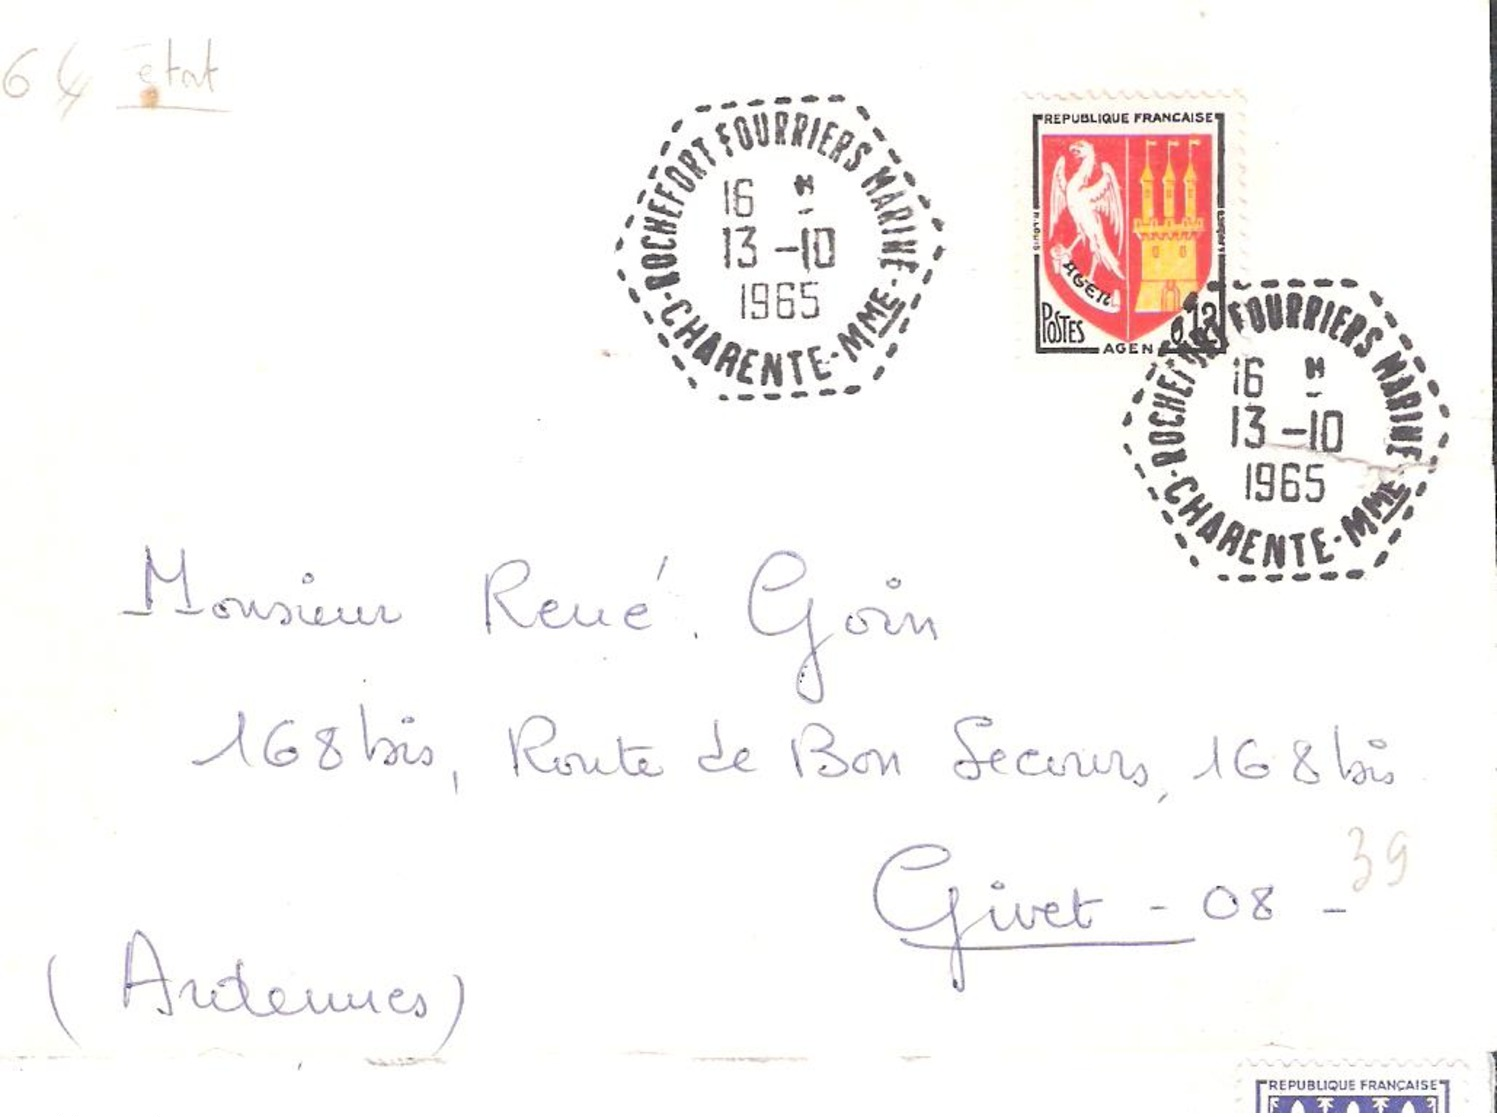 64 état
ROCHEFORT FOURRIERS MARINE
16 H
13-10
1965
-CHARENTE-MME-
REPUBLIQUE FRANCAISE
AGEN
POSTES
0,12
AGEN
ROCHEFORT FOURRIERS MARINE
16 H
13-10
1965
-CHARENTE-MME-
Monsieur René Goin
168 bis, Route de Bon Secours, 168 bis
Givet - 08 -
39
(Ardennes)
REPUBLIQUE FRANÇAISE